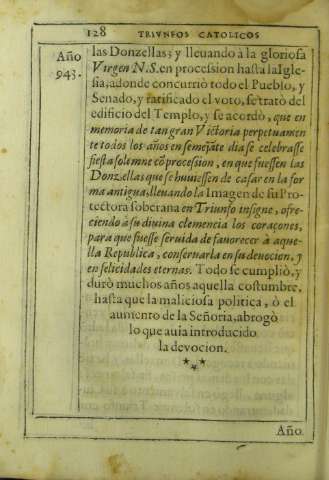 128 TRIVNFOS CATOLICOS
Año
943.
las Donzellas; y lleuando à la gloriosa
Virgen N.S. en procession hasta la Igle-
sia, adonde concurriò todo el Pueblo, y
Senado, y ratificado el voto, se tratò del
edificio del Templo, y se acordò, que en
memoria de tan gran Victoria perpetuamen
te todos los años en semejãte dia se celebrasse
fiesta solemne cõ procession, en que fuessen las
Donzellas que se huuiessen de casar en la for
ma antigua, lleuando la Imagen de su Pro-
tectora soberana en Triunfo insigne, ofre-
ciendo à su diuina clemencia los coraçones,
para que fuesse seruida de fauorecer à aque-
lla Republica, conseruarla en su deuocion, y
en felicidades eternas. Todo se cumpliò, y
durò muchos años aquella costumbre,
hasta que la maliciosa politica, ò el
aumento de la Señoria, abrogò
lo que auia introducido
la devocion.
Año.